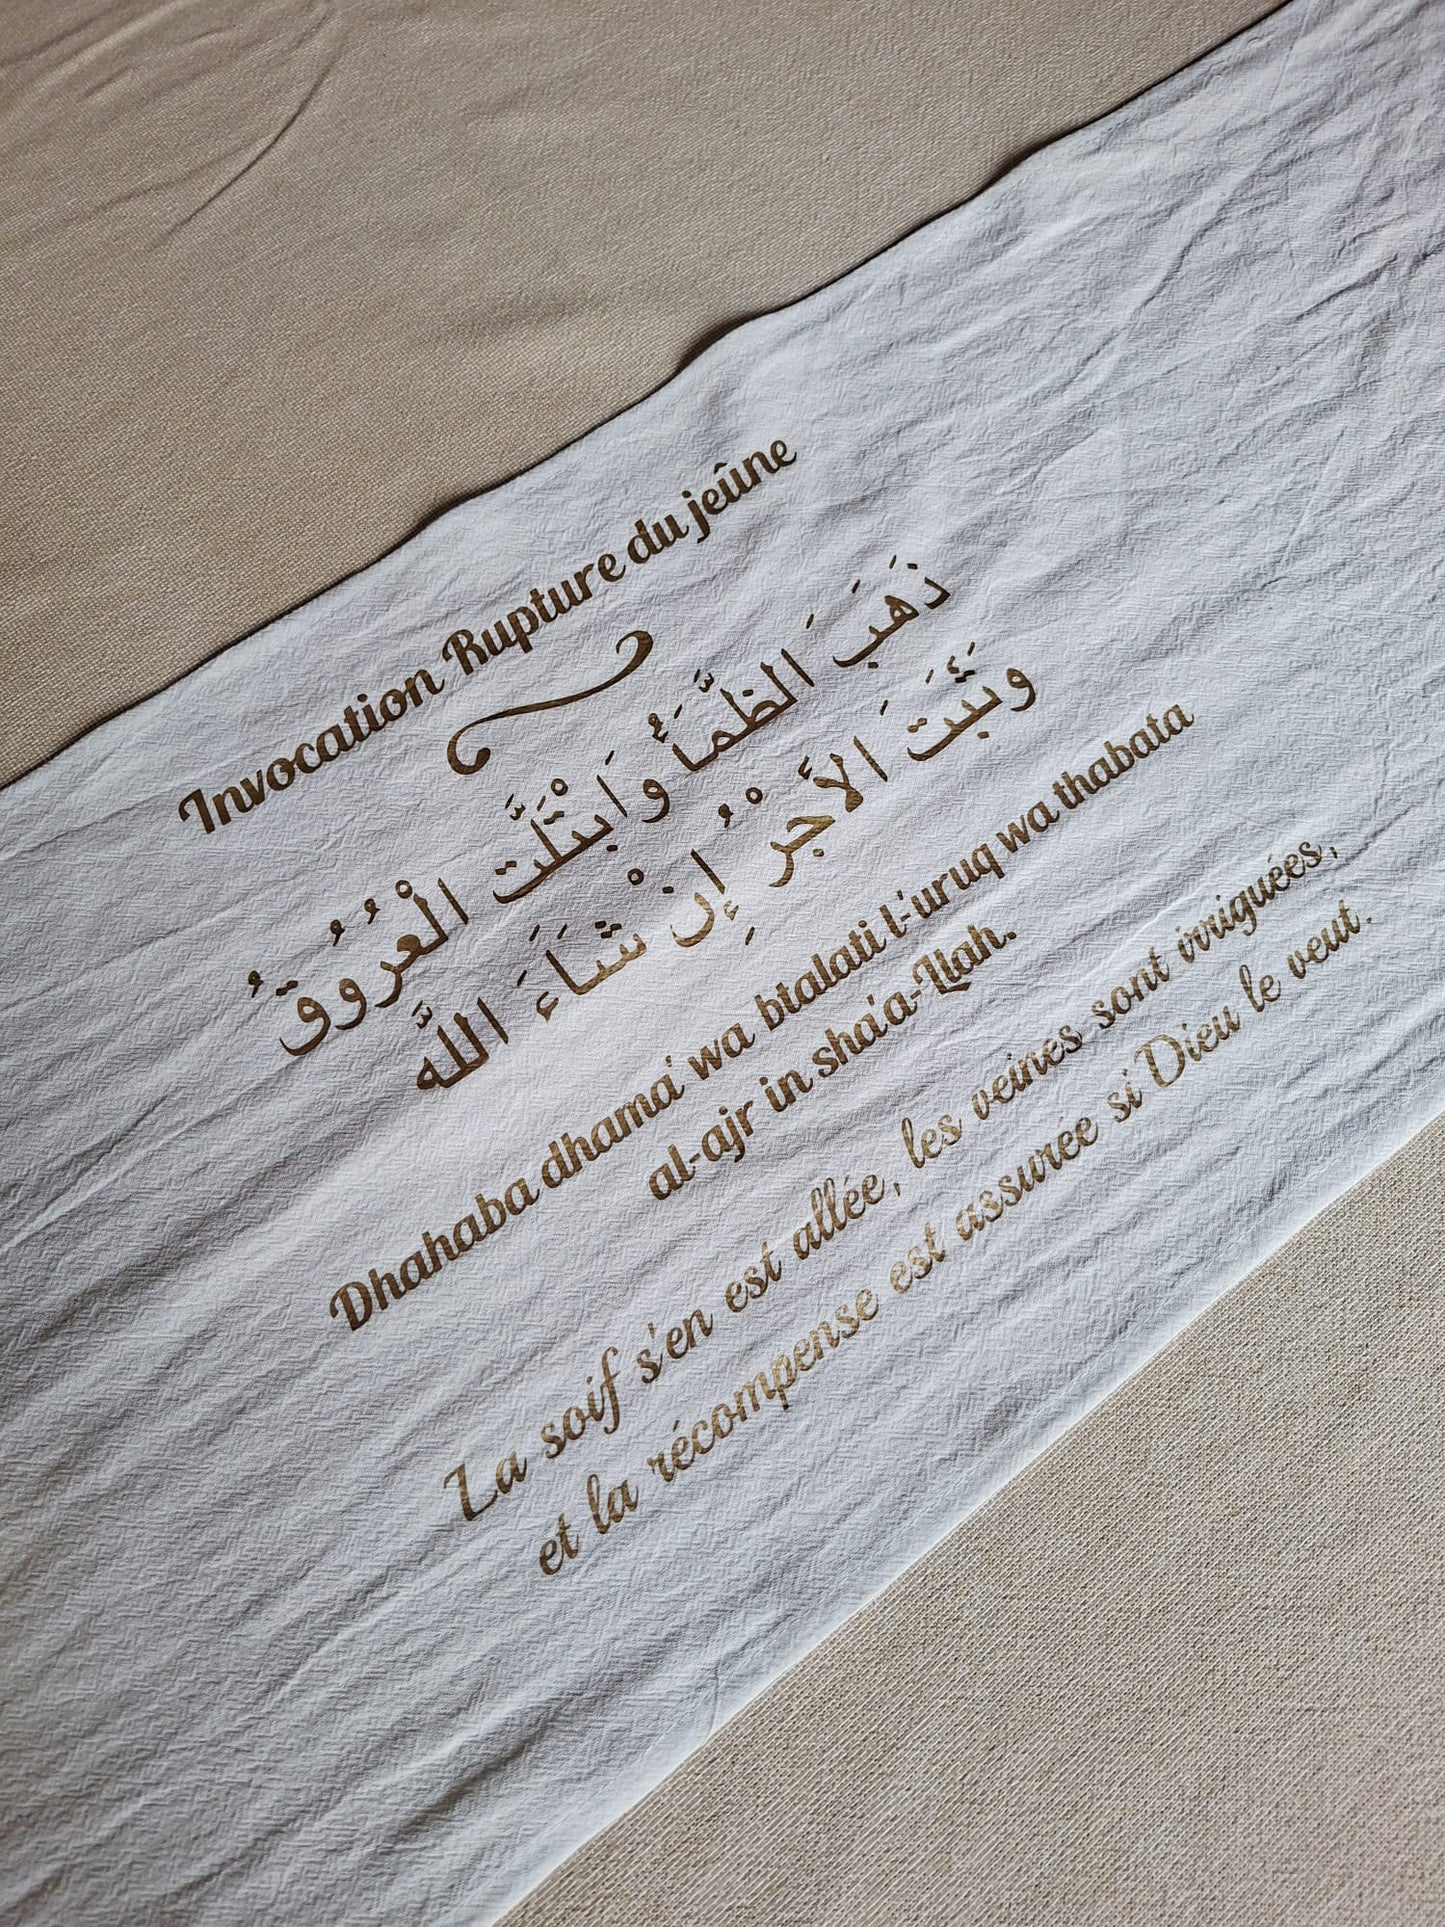 Invocation Rupture du jeûne
ذَهَبَ الظَّمَأُ وَابْتَلَّتِ الْعُرُوقُ
وَثَبَتَ الأَجْرُ إِنْ شَاءَ اللَّه
Dhahaba dhama' wa btalati l-'uruq wa thabata
al-ajr in sha'a-Llah.
La soif s'en est allée, les veines sont irriguées,
et la récompense est assurée si Dieu le veut.